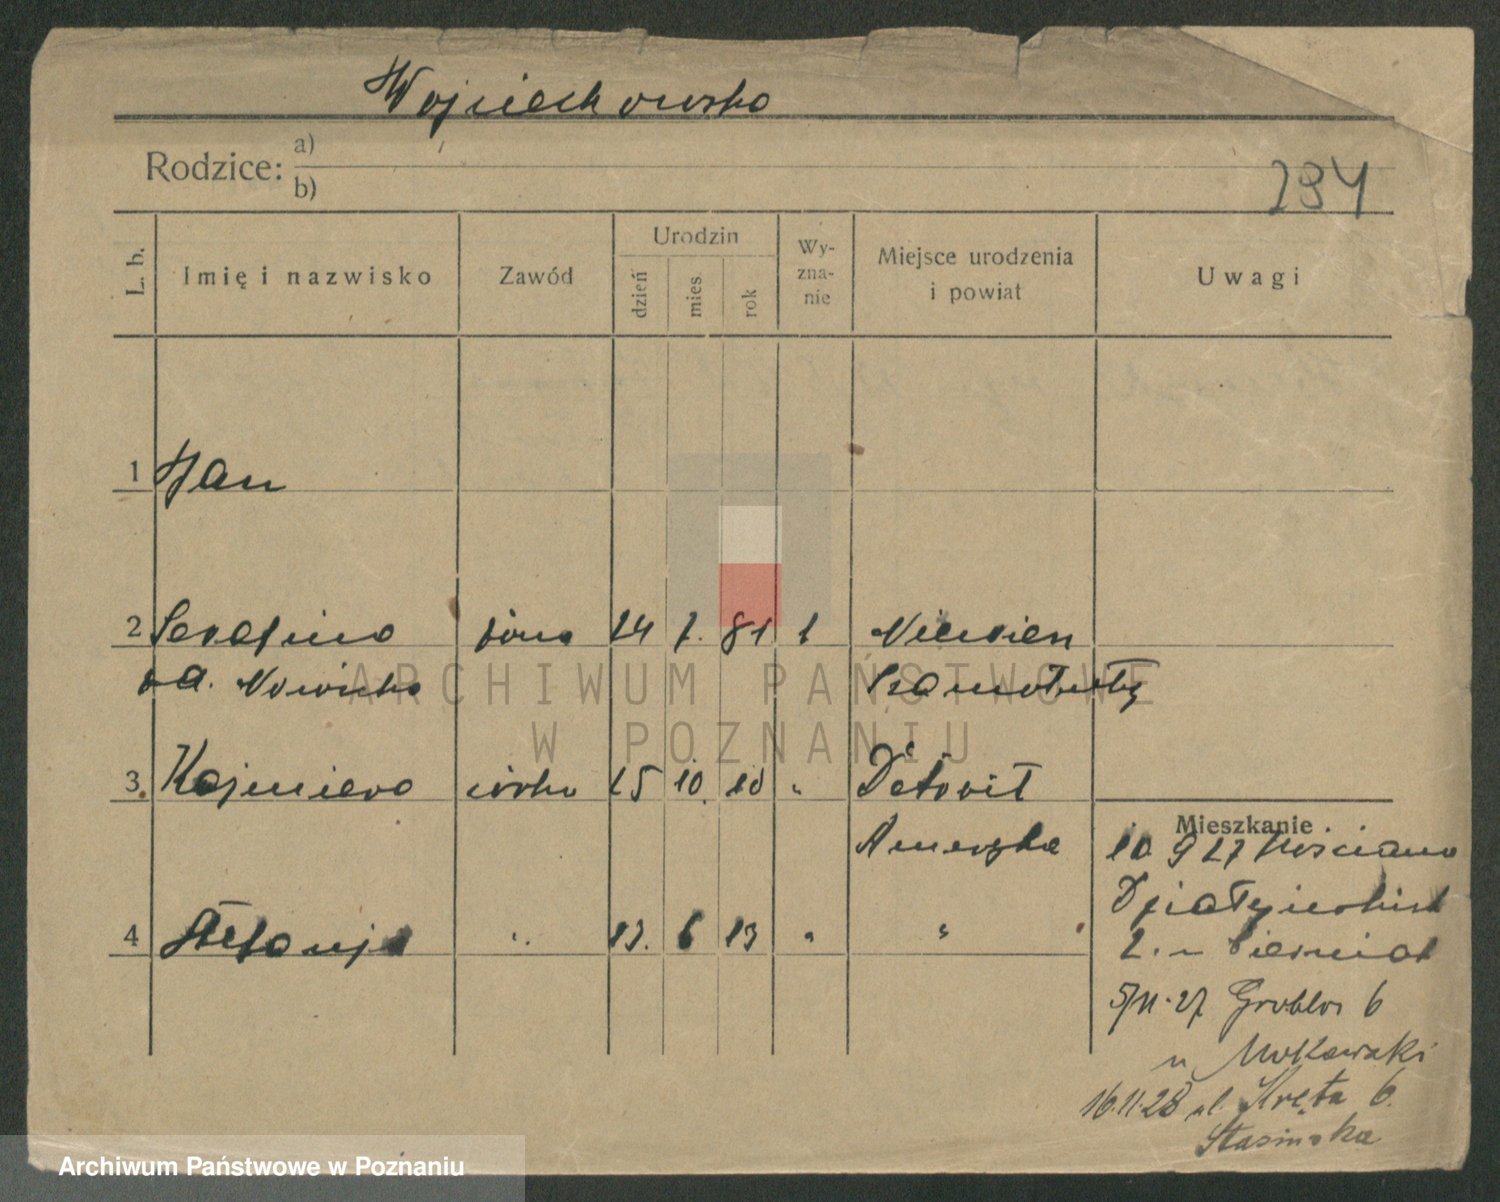 Wojciechowska
Rodzice: a)
b)
294
L. b. Imię i nazwisko Zawód Urodzin dzień mies. rok Wy-zna-nie Miejsce urodzenia i powiat Uwagi
1 Jan
2 Serafina żona 24 7. 81 1
Szamotuły
3. Kazimiera córka 25 10. 10 " Detroit
Ameryka
Mieszkanie
10 9 27 Kościana
4 Stefanja " 13. 6 13 " "
Działyńskich
2.
5/11.27 Groblas 6
u Mokowski
16.11.28 ul. Kręta 6.
Stasińska
ARCHIWUM PAŃSTWOWE
W POZNANIU
Archiwum Państwowe w Poznaniu